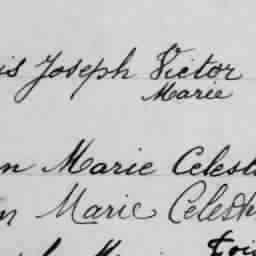 is Joseph Victor
Marie
n Marie Celest
n Marie Celest